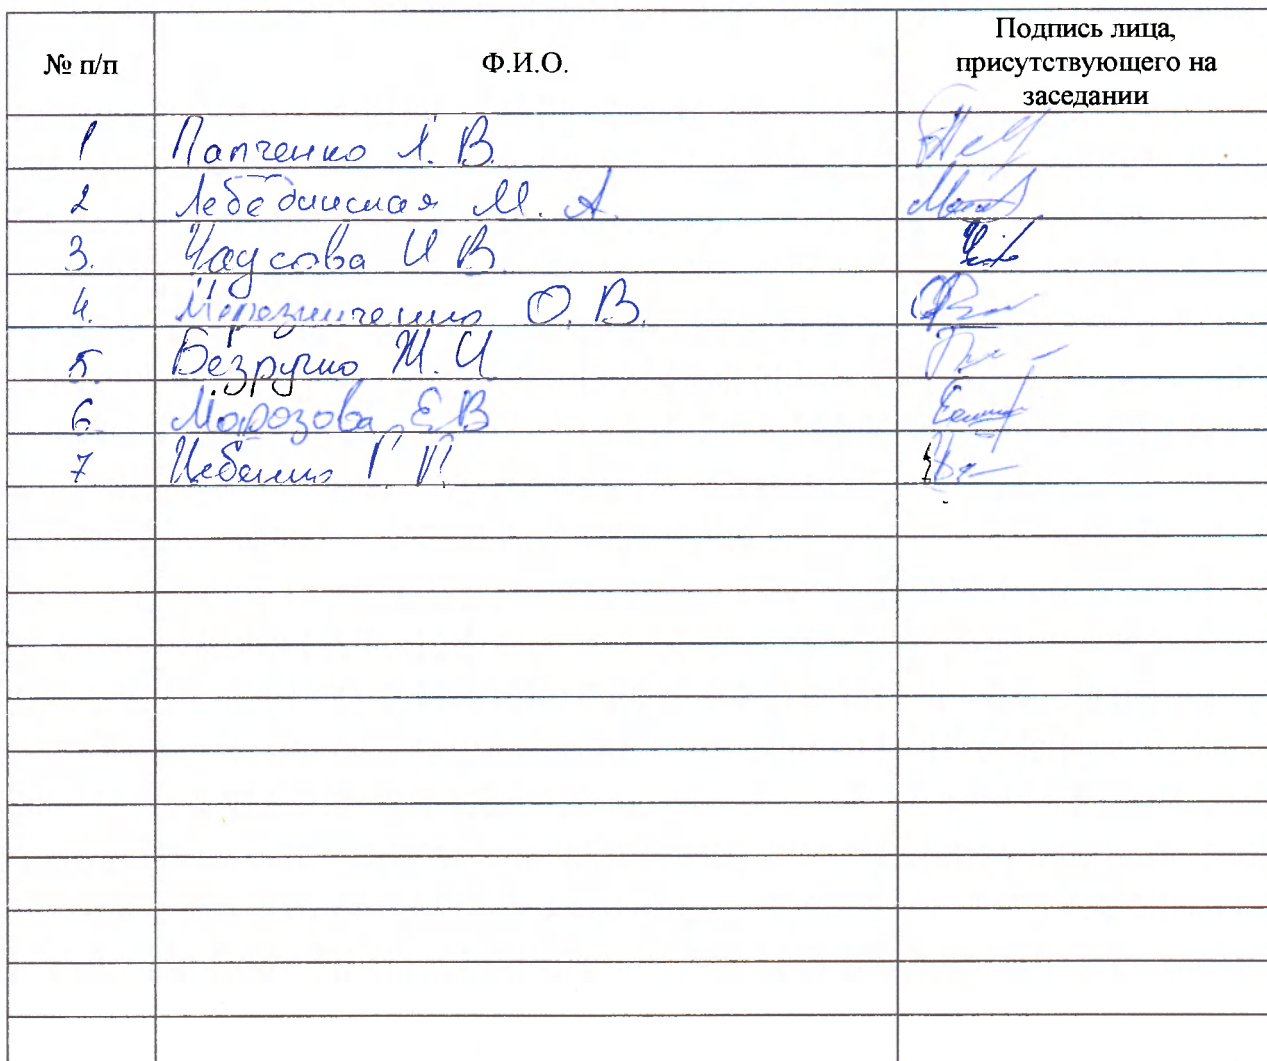 № п/п Ф.И.О. Подпись лица,
присутствующего на
заседании
1 Папченко Л. В.
2 Лебединская М. А.
3. Чаусова И В
4. О. В.
5. Безручко Ж. И
6. Морозова Е В
7 Г П